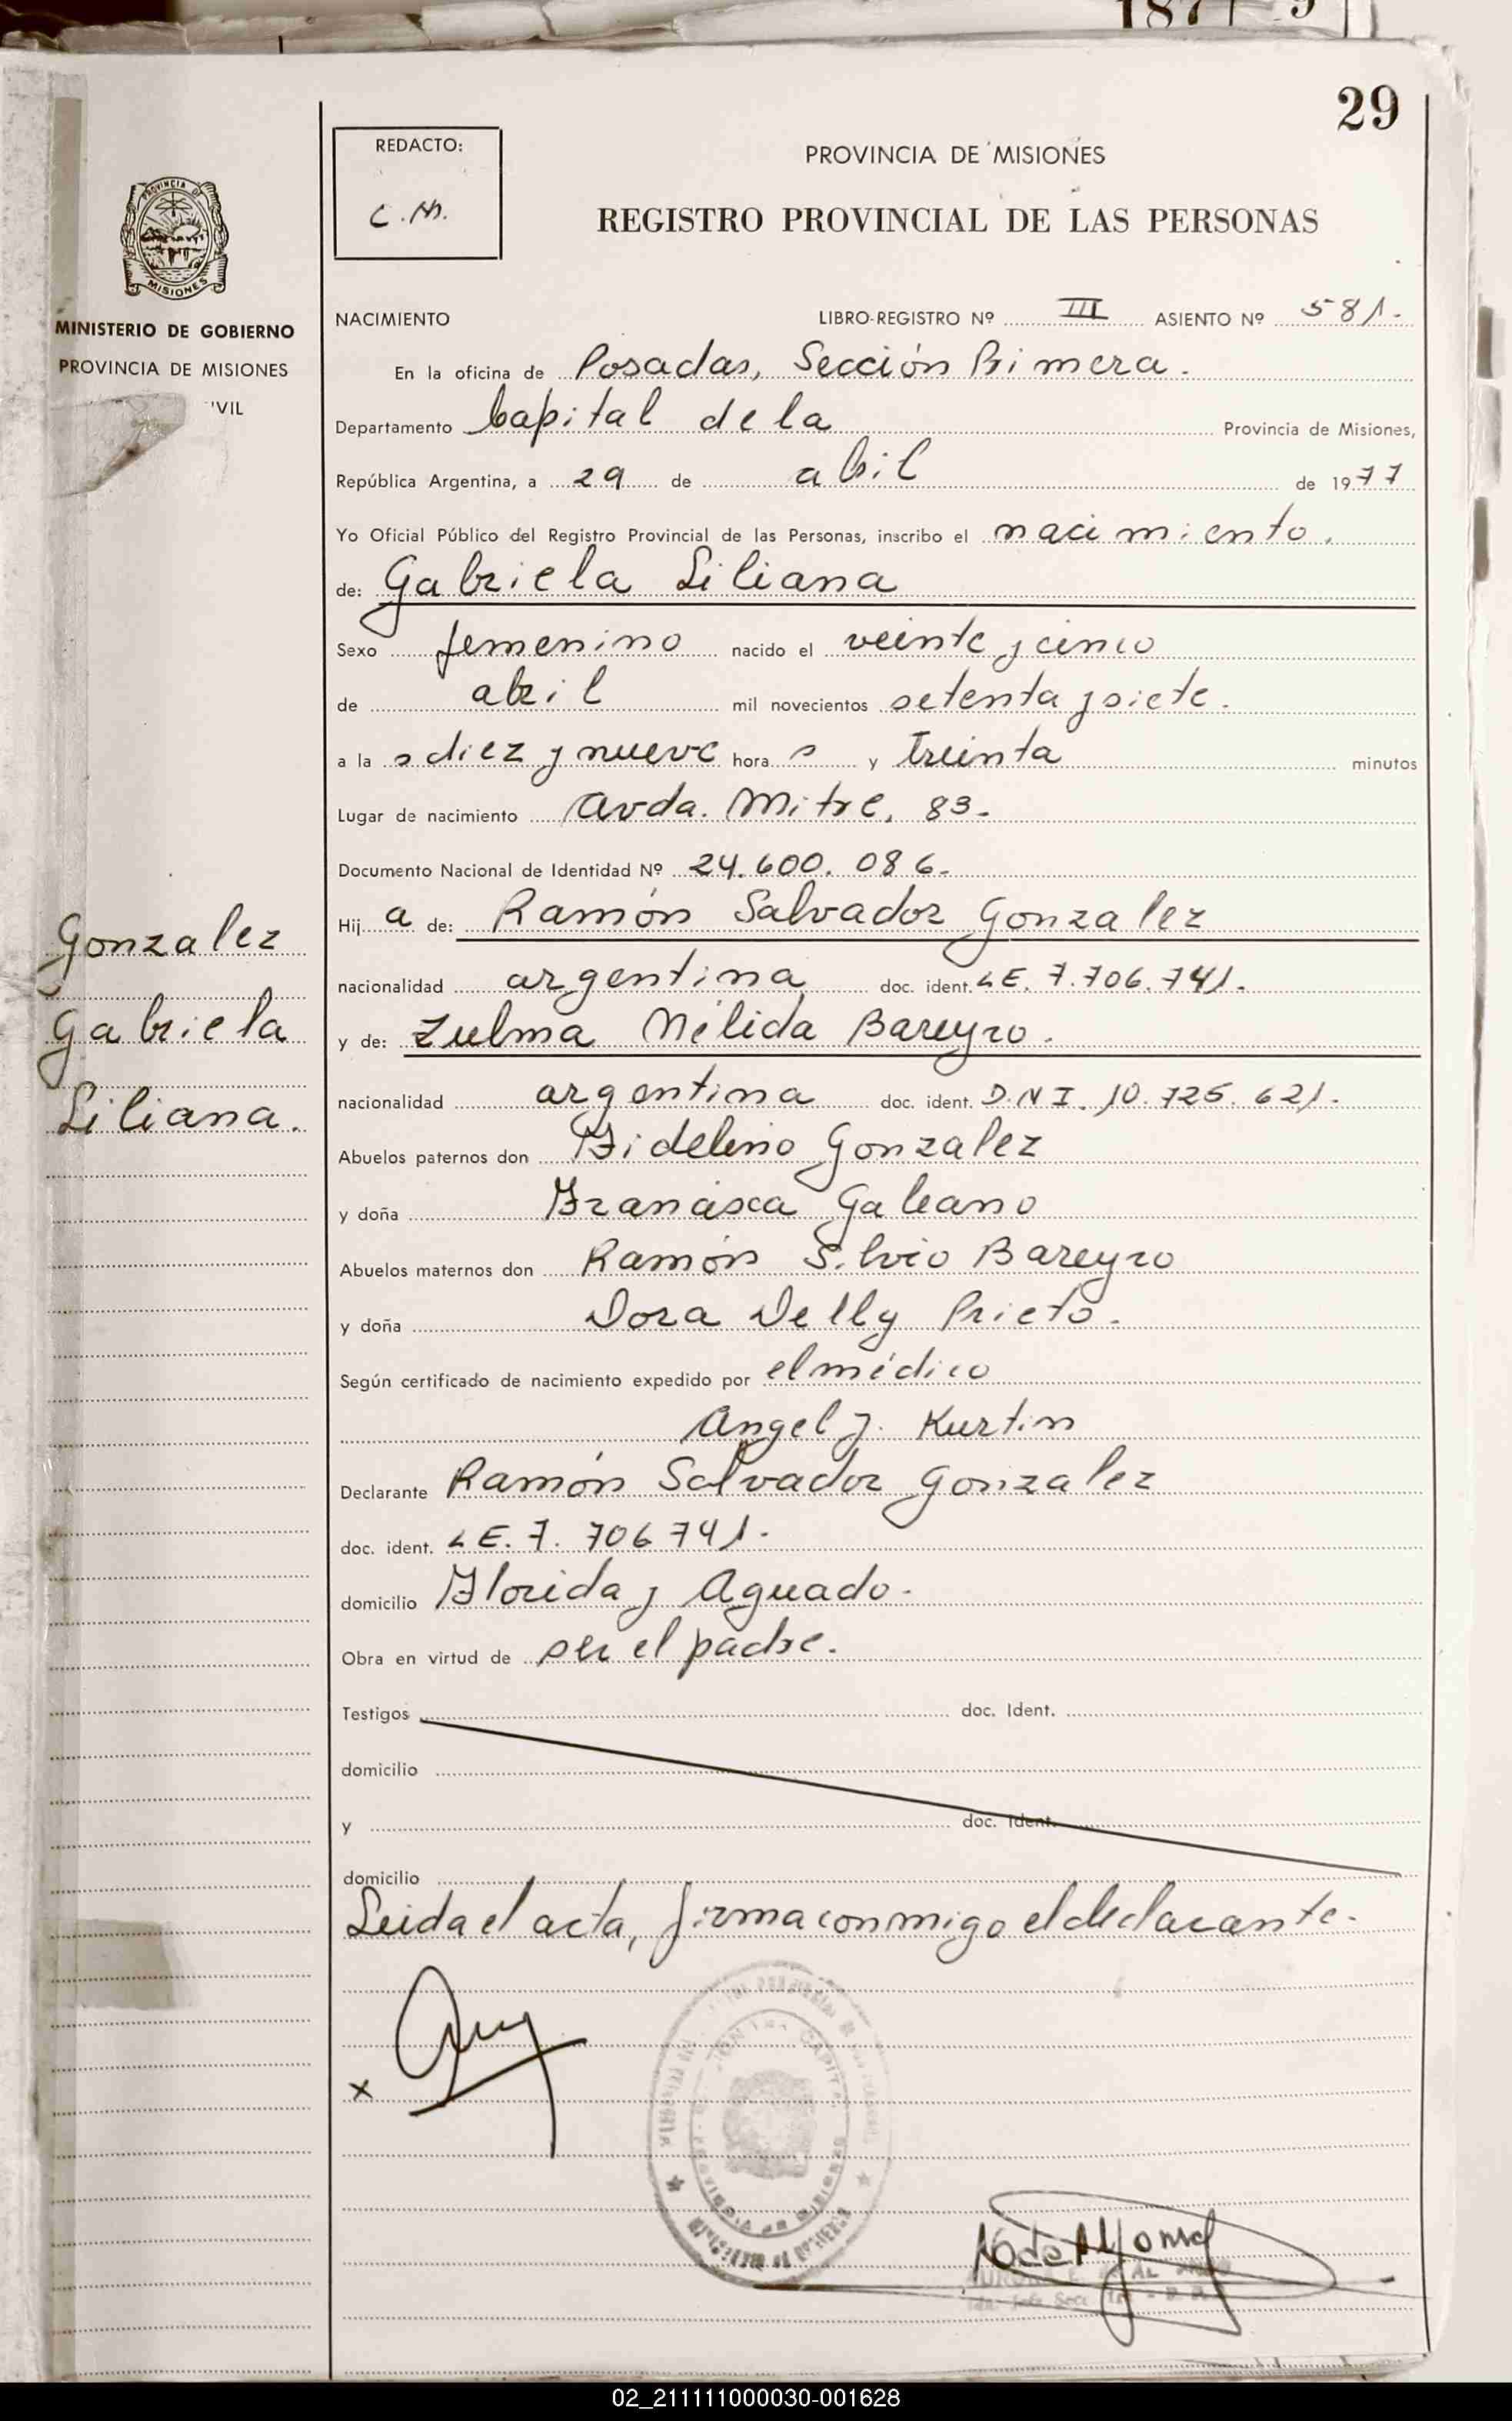 29
REDACTO:
C.M.
PROVINCIA DE MISIONES
REGISTRO PROVINCIAL DE LAS PERSONAS
MISIONES
MINISTERIO DE GOBIERNO
PROVINCIA DE MISIONES
VIL
NACIMIENTO LIBRO-REGISTRO Nº III ASIENTO Nº 581.
En la oficina de Posadas, Sección Primera.
Departamento Capital de la Provincia de Misiones,
República Argentina, a 29 de abril de 1977
Yo Oficial Público del Registro Provincial de las Personas, inscribo el nacimiento.
de: Gabriela Liliana
Sexo femenino nacido el veinte y cinco
de abril mil novecientos setenta y siete.
a la s diez y nueve hora s y treinta minutos
Lugar de nacimiento Avda. Mitre, 83.
Documento Nacional de Identidad Nº 24.600.086.
Hij a de: Ramón Salvador Gonzalez
nacionalidad argentina doc. ident. LE. 7.706.741.
y de: Zulma Nélida Bareyro.
nacionalidad argentina doc. ident. D.N.I. 10.725.621.
Gonzalez
Gabriela
Liliana.
Abuelos paternos don Fidelino Gonzalez
y doña Francisca Galeano
Abuelos maternos don Ramón Silvio Bareyro
y doña Dora Delly Prieto.
Según certificado de nacimiento expedido por el médico
Angel J. Kurtin
Declarante Ramón Salvador Gonzalez
doc. ident. LE. 7.706741.
domicilio Florida y Aguado.
Obra en virtud de ser el padre.
Testigos doc. Ident.
domicilio
y doc. ident.
domicilio
Leida el acta, firma conmigo el declarante.
x
02_211111000030-001628